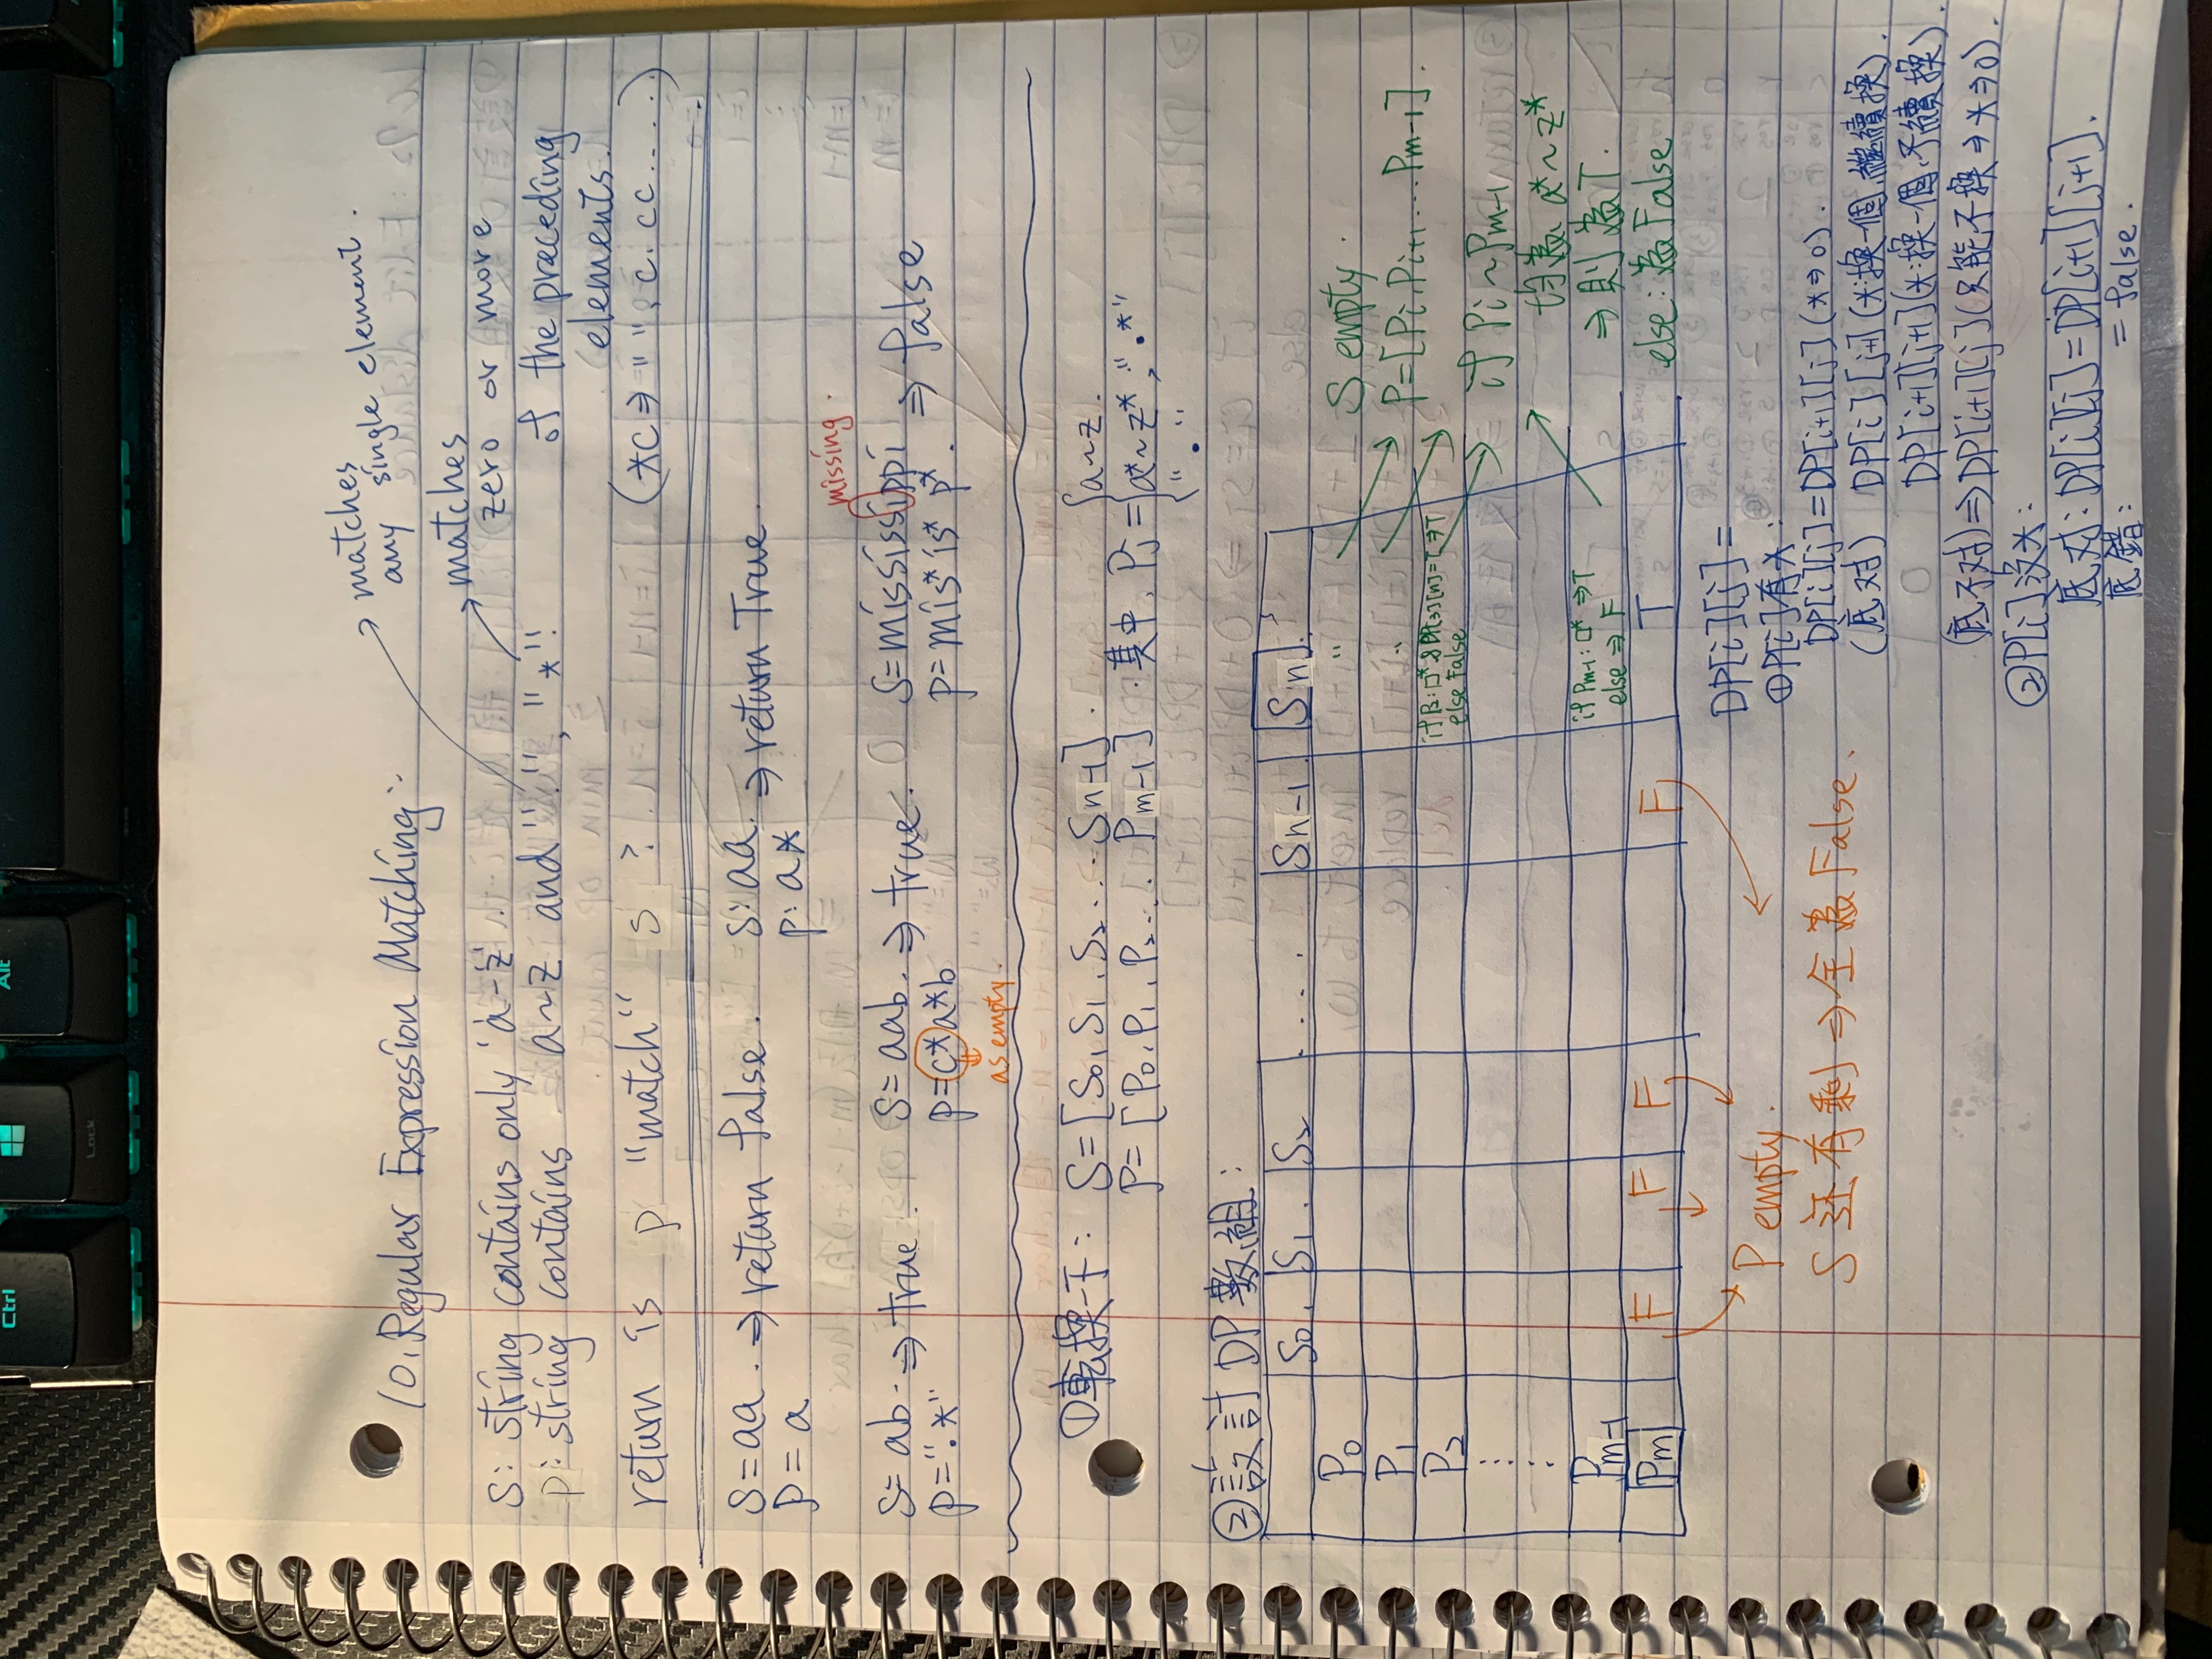 Ctrl
Lock
Alt
10. Regular Expression Matching:
matches
any single element.
S: string contains only 'a-z'.
matches
zero or more
p: string contains a~z and ".", "*"
of the preceding
elements.
return is p "match" s ?
(*C ⇒ " ", c. cc.....)
S=aa. ⇒ return false.
P=a
S: aa. ⇒ return True.
p: a*
missing.
S=ab. ⇒ true.
p=".*"
S=aab. ⇒ true.
p=c*a*b
as empty.
S=mississippi ⇒ false
p=mis*is*p*.
①転換一下: S=[S0, S1, S2... Sn-1].
P=[P0, P1, P2... Pm-1]. 其中, Pj={a~z.
a*~z*, ".*"
"."
②設計DP數組:
S0. S1. S2 .... Sn-1 Sn.
P0
P1
P2 if P2: □* & DP[3][n]=T ⇒ T
else False
Pm-1 if Pm-1: □* ⇒ T
else ⇒ F
Pm F F F F T
S empty.
P=[Pi, Pi+1... Pm-1].
if Pi~Pm-1
均為 a*~z*
⇒ 則為T.
else: 為False
P empty.
S还有剩 ⇒ 全為False.
DP[i][j]=
①P[i]有*:
DP[i][j]=DP[i+1][j] (*⇒0).
(底对) DP[i][j+1] (*:換一個,繼續換).
DP[i+1][j+1] (*:換一個,不續換).
(底不对) ⇒ DP[i+1][j] (只能不換 ⇒ *⇒0).
②P[i]沒*:
底对: DP[i][j]=DP[i+1][j+1].
底錯: = false.